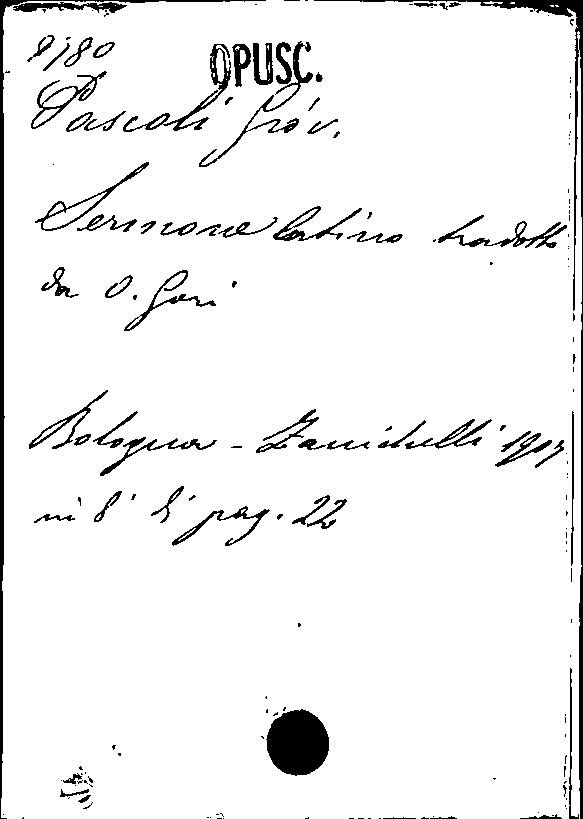 8780
OPUSC.
Pascoli Giov.
Sermone latino tradotto
da O. Gori
Bologna - Zanichelli 1907
in 8° di pag. 22